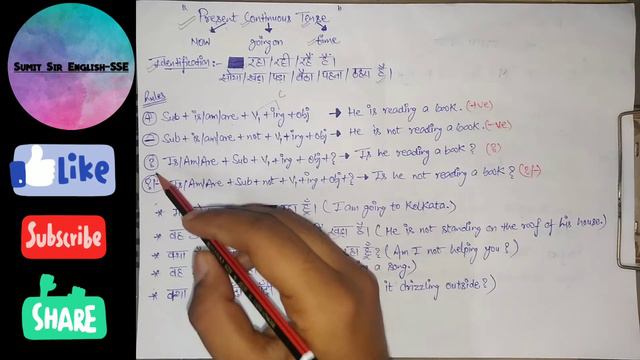 SUMIT SIR ENGLISH-SSE
LIKE
Subscribe
SHARE
Present Continuous Tense
Now going on time
Identification:- रहा / रही / रहे हैं।
सोया / खड़ा / पड़ा / बैठा / पहना / ठहरा है।
Rules
+ Sub + is/am/are + V₁ + ing + obj → He is reading a book. (+ve)
- Sub + is/am/are + not + V₁ + ing + obj → He is not reading a book. (-ve)
? Is/Am/Are + Sub + V₁ + ing + obj + ? → Is he reading a book? (?)
?/- Is/Am/Are + Sub + not + V₁ + ing + obj + ? → Is he not reading a book? (?/-)
* हूँ। (I am going to Kolkata.)
* वह है। (He is not standing on the roof of his house.)
* क्या रहा हूँ? (Am I not helping you?)
* वह a song.)
* क्या it drizzling outside?)